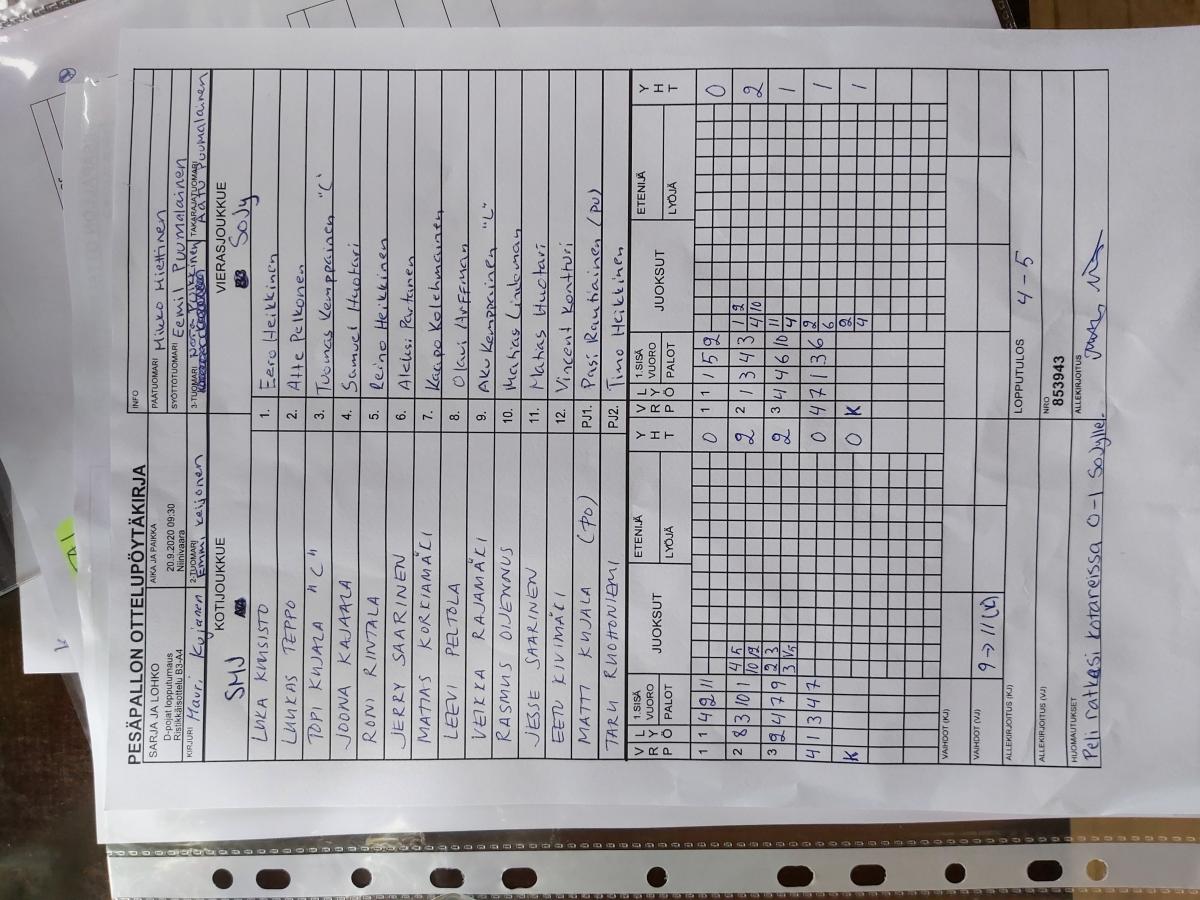 PESÄPALLON OTTELUPÖYTÄKIRJA
SARJA JA LOHKO
D-pojat lopputurnaus
Ristikkäisottelu B3-A4
AIKA JA PAIKKA
20.9.2020 09:30
Niinivaara
INFO
PÄÄTUOMARI Mikko Miettinen
SYÖTTÖTUOMARI Eemil Puumalainen
KIRJURI Mauri Kujanen
2-TUOMARI Emmi Keijonen
3-TUOMARI
TAKARAJATUOMARI Aatu Puumalainen
KOTIJOUKKUE
SMJ
VIERASJOUKKUE
SoJy
LUKA KIVISISTO 1. Eero Heikkinen
LUUKAS TEPPO 2. Atte Pelkonen
TOPI KUJALA "C" 3. Tuomas Kemppainen "C"
JOONA KAJAALA 4. Samuel Huotari
RONI RINTALA 5. Reino Heikkinen
JERRY SAARINEN 6. Aleksi Partanen
MATIAS KORKIAMÄKI 7. Kaapo Kolehmainen
LEEVI PELTOLA 8. Olavi Arffman
VEIKKA RAJAMÄKI 9. Aku Kemppainen "L"
RASMUS OIJENNUS 10. Mathias Lindoman
JESSE SAARINEN 11. Matias Huotari
EETU KIVIMÄKI 12. Vincent Kontturi
MATTI KUJALA (PD) PJ1. Pasi Rautiainen (PV)
TARU RUOHONIEMI PJ2. Timo Heikkinen
V R P L Y Ö 1.SISÄ VUORO PALOT JUOKSUT ETENIJÄ LYÖJÄ Y H T V R P L Y Ö 1.SISÄ VUORO PALOT JUOKSUT ETENIJÄ LYÖJÄ Y H T
1 1 4 2 11 0 1 1 1 5 2 0
2 8 3 10 1 4 5 10 12 2 2 1 3 4 3 1 2 4 10 2
3 9 2 4 7 9 2 3 3 V5 2 3 4 4 6 10 11 4 1
4 1 3 4 7 0 4 7 1 3 6 9 6 1
K 0 K 2 4 1
VAIHDOT (KJ)
VAIHDOT (VJ) 9 → 11 (K)
ALLEKIRJOITUS (KJ)
LOPPUTULOS 4 - 5
ALLEKIRJOITUS (VJ)
NRO
853943
HUOMAUTUKSET
ALLEKIRJOITUS
Peli ratkesi kotareissa 0-1 SoJylle.